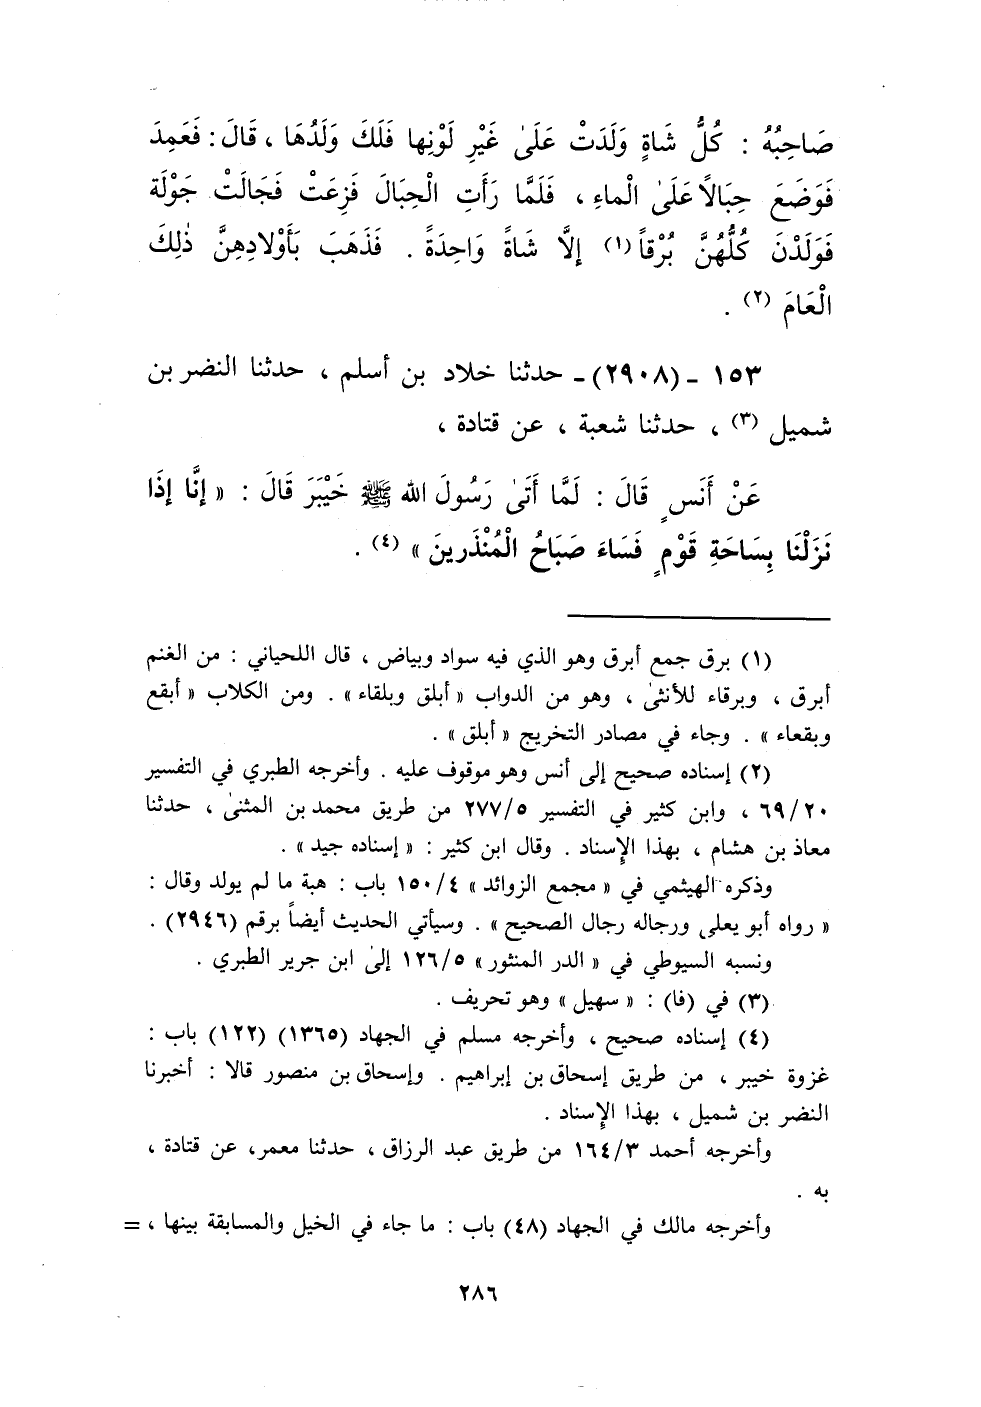 صَاحِبُهُ : كُلُّ شَاةٍ وَلَدَتْ عَلَىٰ غَيْرِ لَوْنِها فَلَكَ وَلَدُهَا ، قَالَ : فَعَمِدَ
فَوَضَعَ حِبَالًا عَلَىٰ الْماءِ ، فَلَمَّا رَأَتِ الْحِبَالَ فَزِعَتْ فَجَالَتْ جَوْلَة
فَوَلَدْنَ كُلُّهُنَّ بُرْقاً (١) إلَّا شَاةً وَاحِدَةً . فَذَهَبَ بَأَوْلادِهِنَّ ذٰلِكَ
الْعَامَ (٢) .
١٥٣ - (٢٩٠٨)ـ حدثنا خلاد بن أسلم ، حدثنا النضر بن
شميل (٣) ، حدثنا شعبة ، عن قتادة ،
عَنْ أَنَسٍ قَالَ : لَمَّا أَتَىٰ رَسُولَ الله ﷺ خَيْبَرَ قَالَ : « إنَّا إذَا
نَزَلْنَا بِسَاحَةِ قَوْمٍ فَسَاءَ صَبَاحُ الْمُنْذَرِينَ » (٤) .
(١) برق جمع أبرق وهو الذي فيه سواد وبياض ، قال اللحياني : من الغنم
أبرق ، وبرقاء للأنثىٰ ، وهو من الدواب « أبلق وبلقاء » . ومن الكلاب « أبقع
وبقعاء » . وجاء في مصادر التخريج « أبلق » .
(٢) إسناده صحيح إلى أنس وهو موقوف عليه . وأخرجه الطبري في التفسير
٦٩/٢٠ ، وابن كثير في التفسير ٢٧٧/٥ من طريق محمد بن المثنىٰ ، حدثنا
معاذ بن هشام ، بهذا الإسناد . وقال ابن كثير : « إسناده جيد » .
وذكره الهيثمي في « مجمع الزوائد » ١٥٠/٤ باب : هبة ما لم يولد وقال :
« رواه أبو يعلى ورجاله رجال الصحيح » . وسيأتي الحديث أيضاً برقم (٢٩٤٦) .
ونسبه السيوطي في « الدر المنثور » ١٢٦/٥ إلىٰ ابن جرير الطبري .
(٣) في (فا) : « سهيل » وهو تحريف .
(٤) إسناده صحيح ، وأخرجه مسلم في الجهاد (١٣٦٥) (١٢٢) باب :
غزوة خيبر ، من طريق إسحاق بن إبراهيم . وإسحاق بن منصور قالا : أخبرنا
النضر بن شميل ، بهذا الإسناد .
وأخرجه أحمد ١٦٤/٣ من طريق عبد الرزاق ، حدثنا معمر، عن قتادة ،
به .
وأخرجه مالك في الجهاد (٤٨) باب : ما جاء في الخيل والمسابقة بينها ، =
٢٨٦